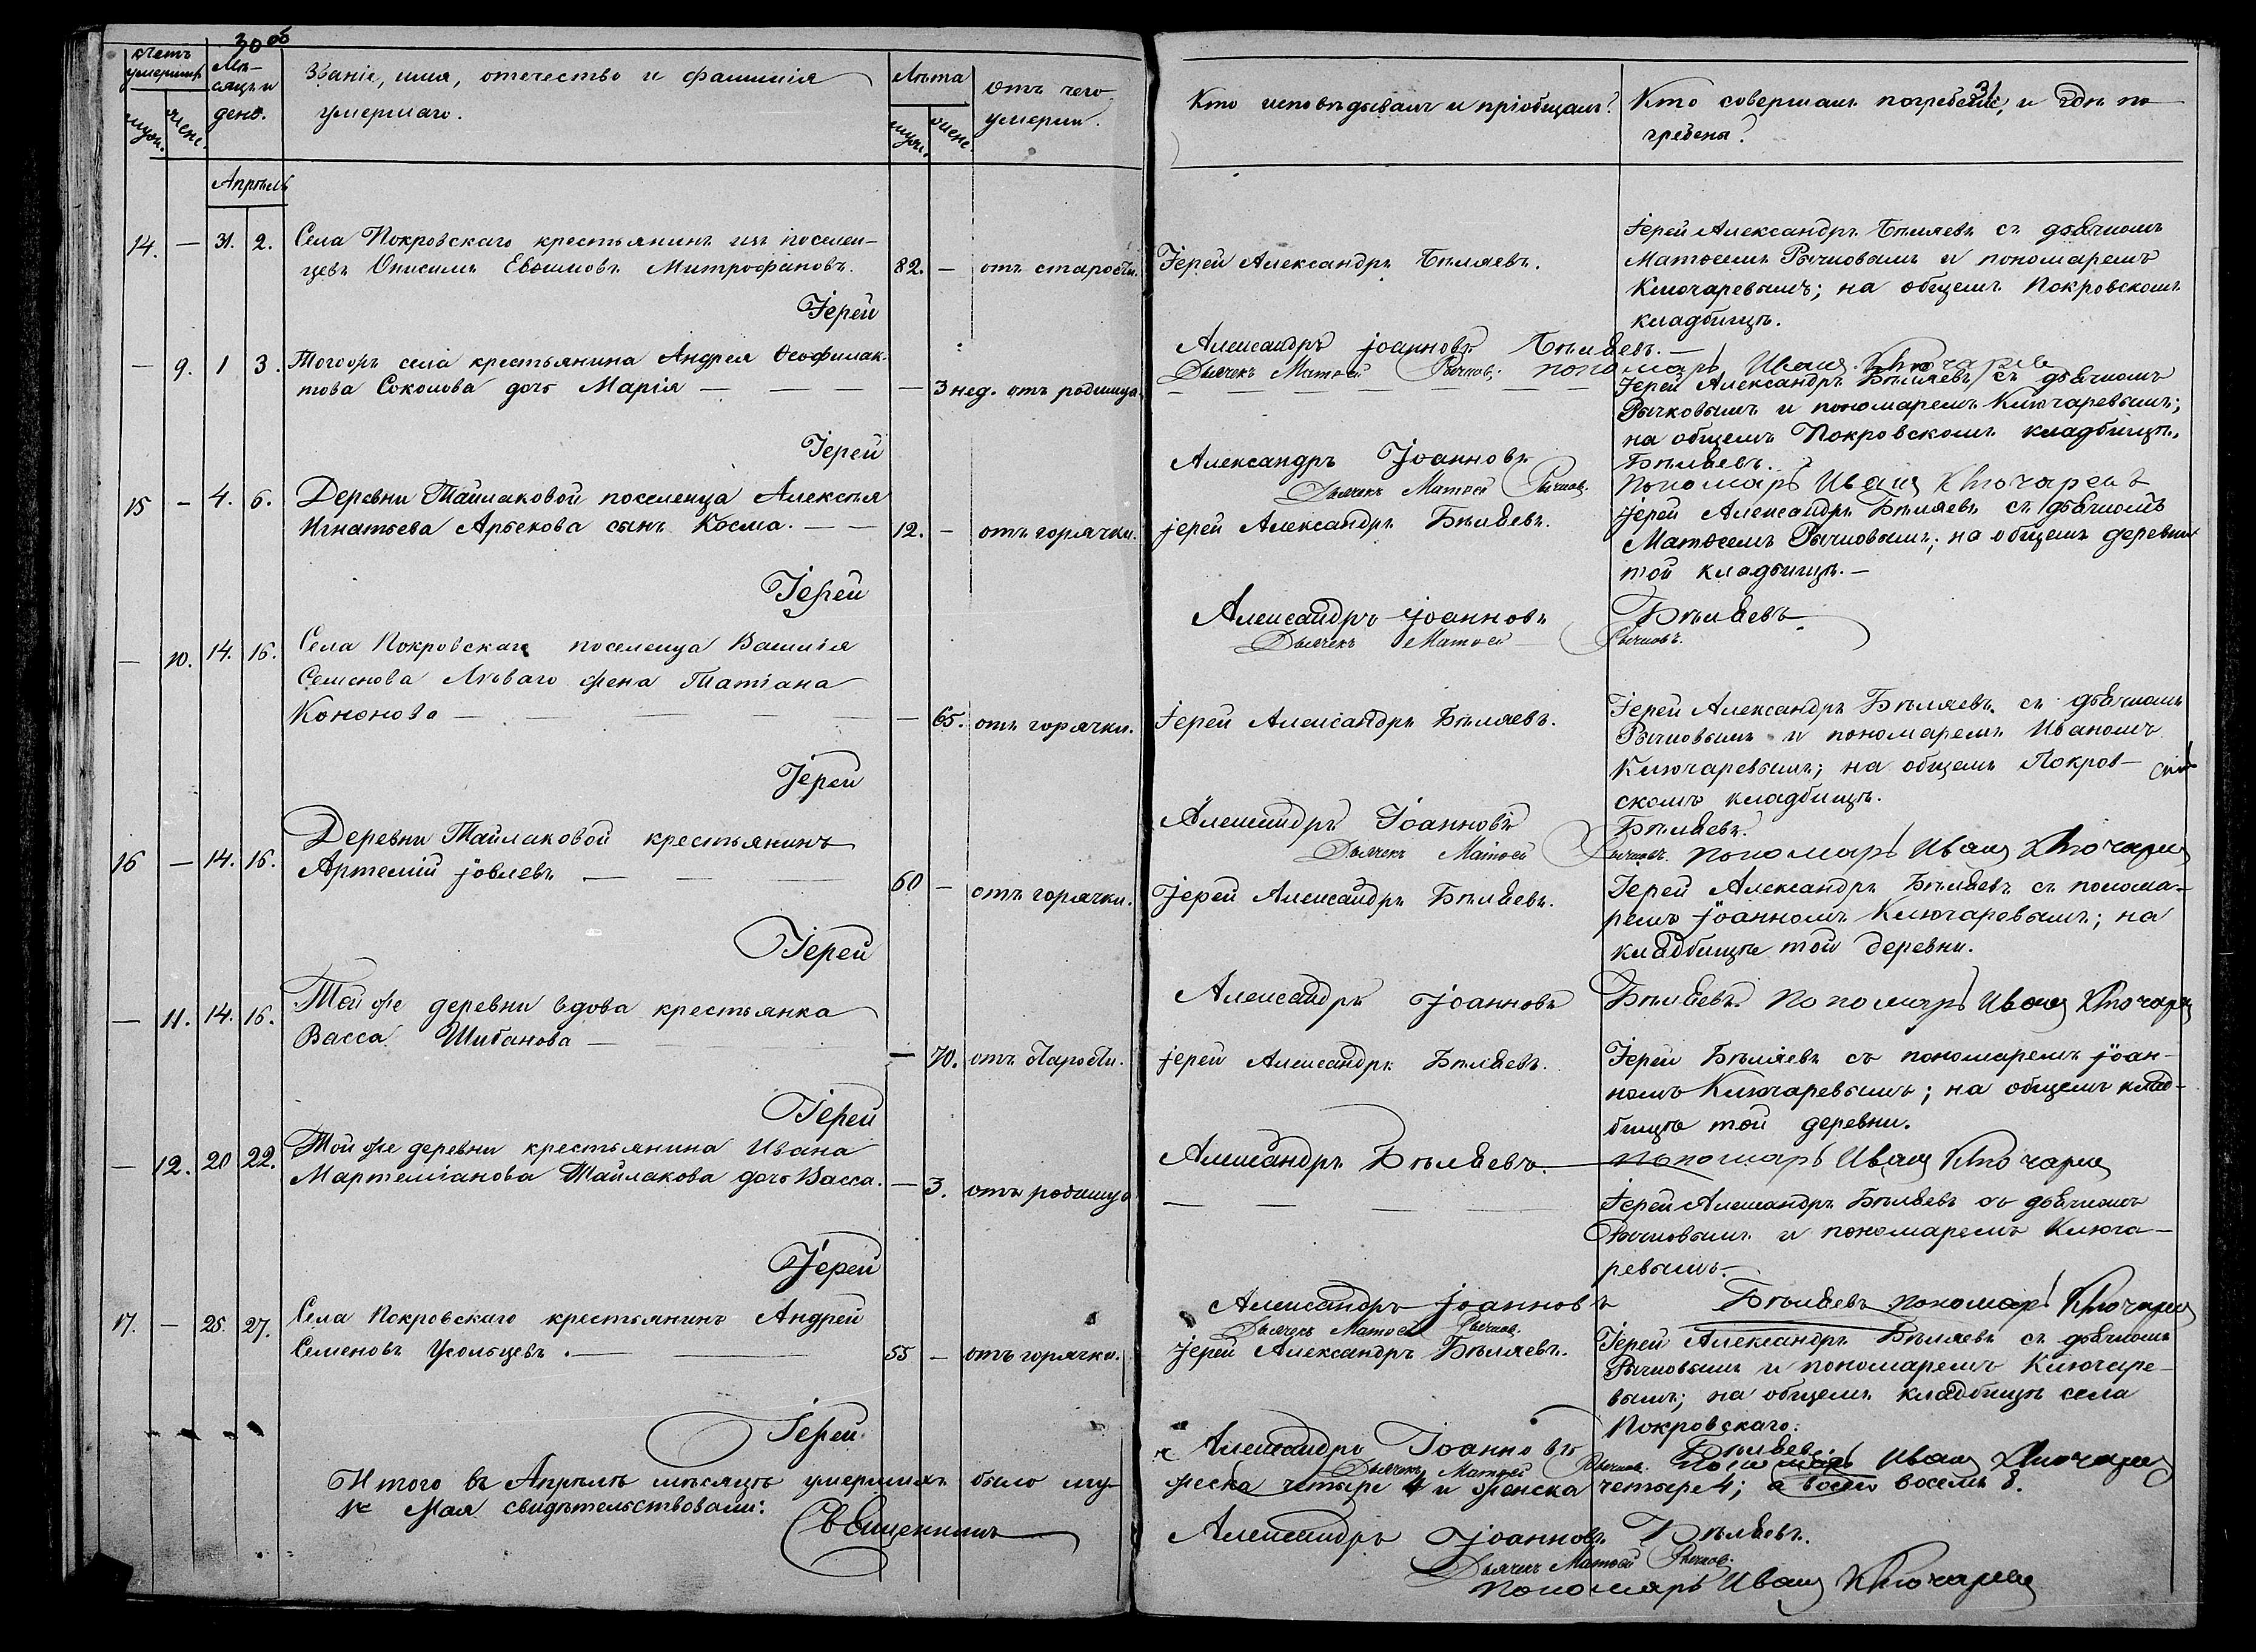 30 об
31
Счетъ умершихъ
муж. жен.
Мѣсяцъ и день.
Званіе, имя, отчество и фамилія умершаго.
Лѣта
муж. жен.
Отъ чего умеръ.
Кто исповѣдывалъ и пріобщалъ?
Кто совершалъ погребеніе, и гдѣ по-
гребены?
Апрѣль
14. — 31. 2. Села Покровскаго крестьянинъ изъ поселен-
цевъ Онисимъ Евѳимовъ Митрофановъ. 82. — отъ старости. Іерей Александръ Бѣляевъ.
Іерей Александръ Бѣляевъ съ дьячкомъ
Матѳеемъ Рычковымъ и пономаремъ
Ключаревымъ; на общемъ Покровскомъ
кладбищѣ.
Іерей Александръ Іоанновъ Бѣляевъ.—
Дьячекъ Матѳей Рычков. пономарь Иванъ Ключарев
— 9. 1 3. Тогожъ села крестьянина Андрея Ѳеофилак-
това Соколова дочь Марія — — — 3 нед. отъ родимца. — — — —
Іерей Александръ Бѣляевъ съ дьячкомъ
Рычковымъ и пономаремъ Ключаревымъ;
на общемъ Покровскомъ кладбищѣ.
Іерей Александръ Іоанновъ Бѣляевъ.
Дьячекъ Матѳей Рычков. Пономарь Иванъ Ключаревъ
15 — 4. 6. Деревни Тайлаковой поселенца Алексѣя
Игнатьева Арбекова сынъ Косма. — — 12. — отъ горячки. Іерей Александръ Бѣляевъ.
Іерей Александръ Бѣляевъ съ дьячкомъ
Матѳеемъ Рычковымъ; на общемъ деревни
той кладбищѣ.—
Іерей Александръ Іоанновъ Бѣляевъ
Дьячекъ Матѳей Рычковъ.
— 10. 14. 16. Села Покровскаго поселенца Василія
Семенова жена Татіана
Кононова — — — — 65. отъ горячки. Іерей Александръ Бѣляевъ.
Іерей Александръ Бѣляевъ съ дьячкомъ
Рычковымъ и пономаремъ Иваномъ
Ключаревымъ; на общемъ Покров-
скомъ кладбищѣ.
Іерей Александръ Іоанновъ Бѣляевъ.
Дьячекъ Матѳей Рычковъ. пономарь Иванъ Ключарев
16 — 14. 16. Деревни Тайлаковой крестьянинъ
Артемій Іовлевъ — — — 60 — отъ горячки. Іерей Александръ Бѣляевъ.
Іерей Александръ Бѣляевъ съ понома-
ремъ Іоанномъ Ключаревымъ; на
кладбищѣ той деревни.
Іерей Александръ Іоанновъ Бѣляевъ. Пономарь Иванъ Ключарев
— 11. 14. 16. Той же деревни вдова крестьянка
Васса Шибанова — — 70. отъ старости. Іерей Александръ Бѣляевъ.
Іерей Бѣляевъ съ пономаремъ Іоан-
номъ Ключаревымъ; на общемъ клад-
бищѣ той деревни.
Іерей Александръ Бѣляевъ. пономарь Иванъ Ключарев
— 12. 20 22. Той же деревни крестьянина Ивана
Мартеміанова Тайлакова дочь Васса. — 3. отъ родимца — — —
Іерей Александръ Бѣляевъ съ дьячкомъ
Рычковымъ и пономаремъ Ключа-
ревымъ.—
Іерей Александръ Іоанновъ Бѣляевъ пономарь Ключарев
Дьячекъ Матѳей Рычков.
17. — 25. 27. Села Покровскаго крестьянинъ Андрей
Семеновъ Усольцевъ. — — 55 — отъ горячки. Іерей Александръ Бѣляевъ.
Іерей Александръ Бѣляевъ съ дьячкомъ
Рычковымъ и пономаремъ Ключаре-
вымъ; на общемъ кладбищѣ села
Покровскаго.
Іерей Александръ Іоанновъ Бѣляевъ.
Дьячекъ Матѳей Рычков. Пономарь Иванъ Ключарев
Итого въ Апрѣлѣ мѣсяцѣ умершихъ было му-
жеска четыре 4 и женска четыре 4; а всего восемь 8.
Мая свидѣтельствовали:
Священникъ Александръ Іоанновъ Бѣляевъ.
Дьячекъ Матѳей Рычков.
Пономарь Иванъ Ключарев